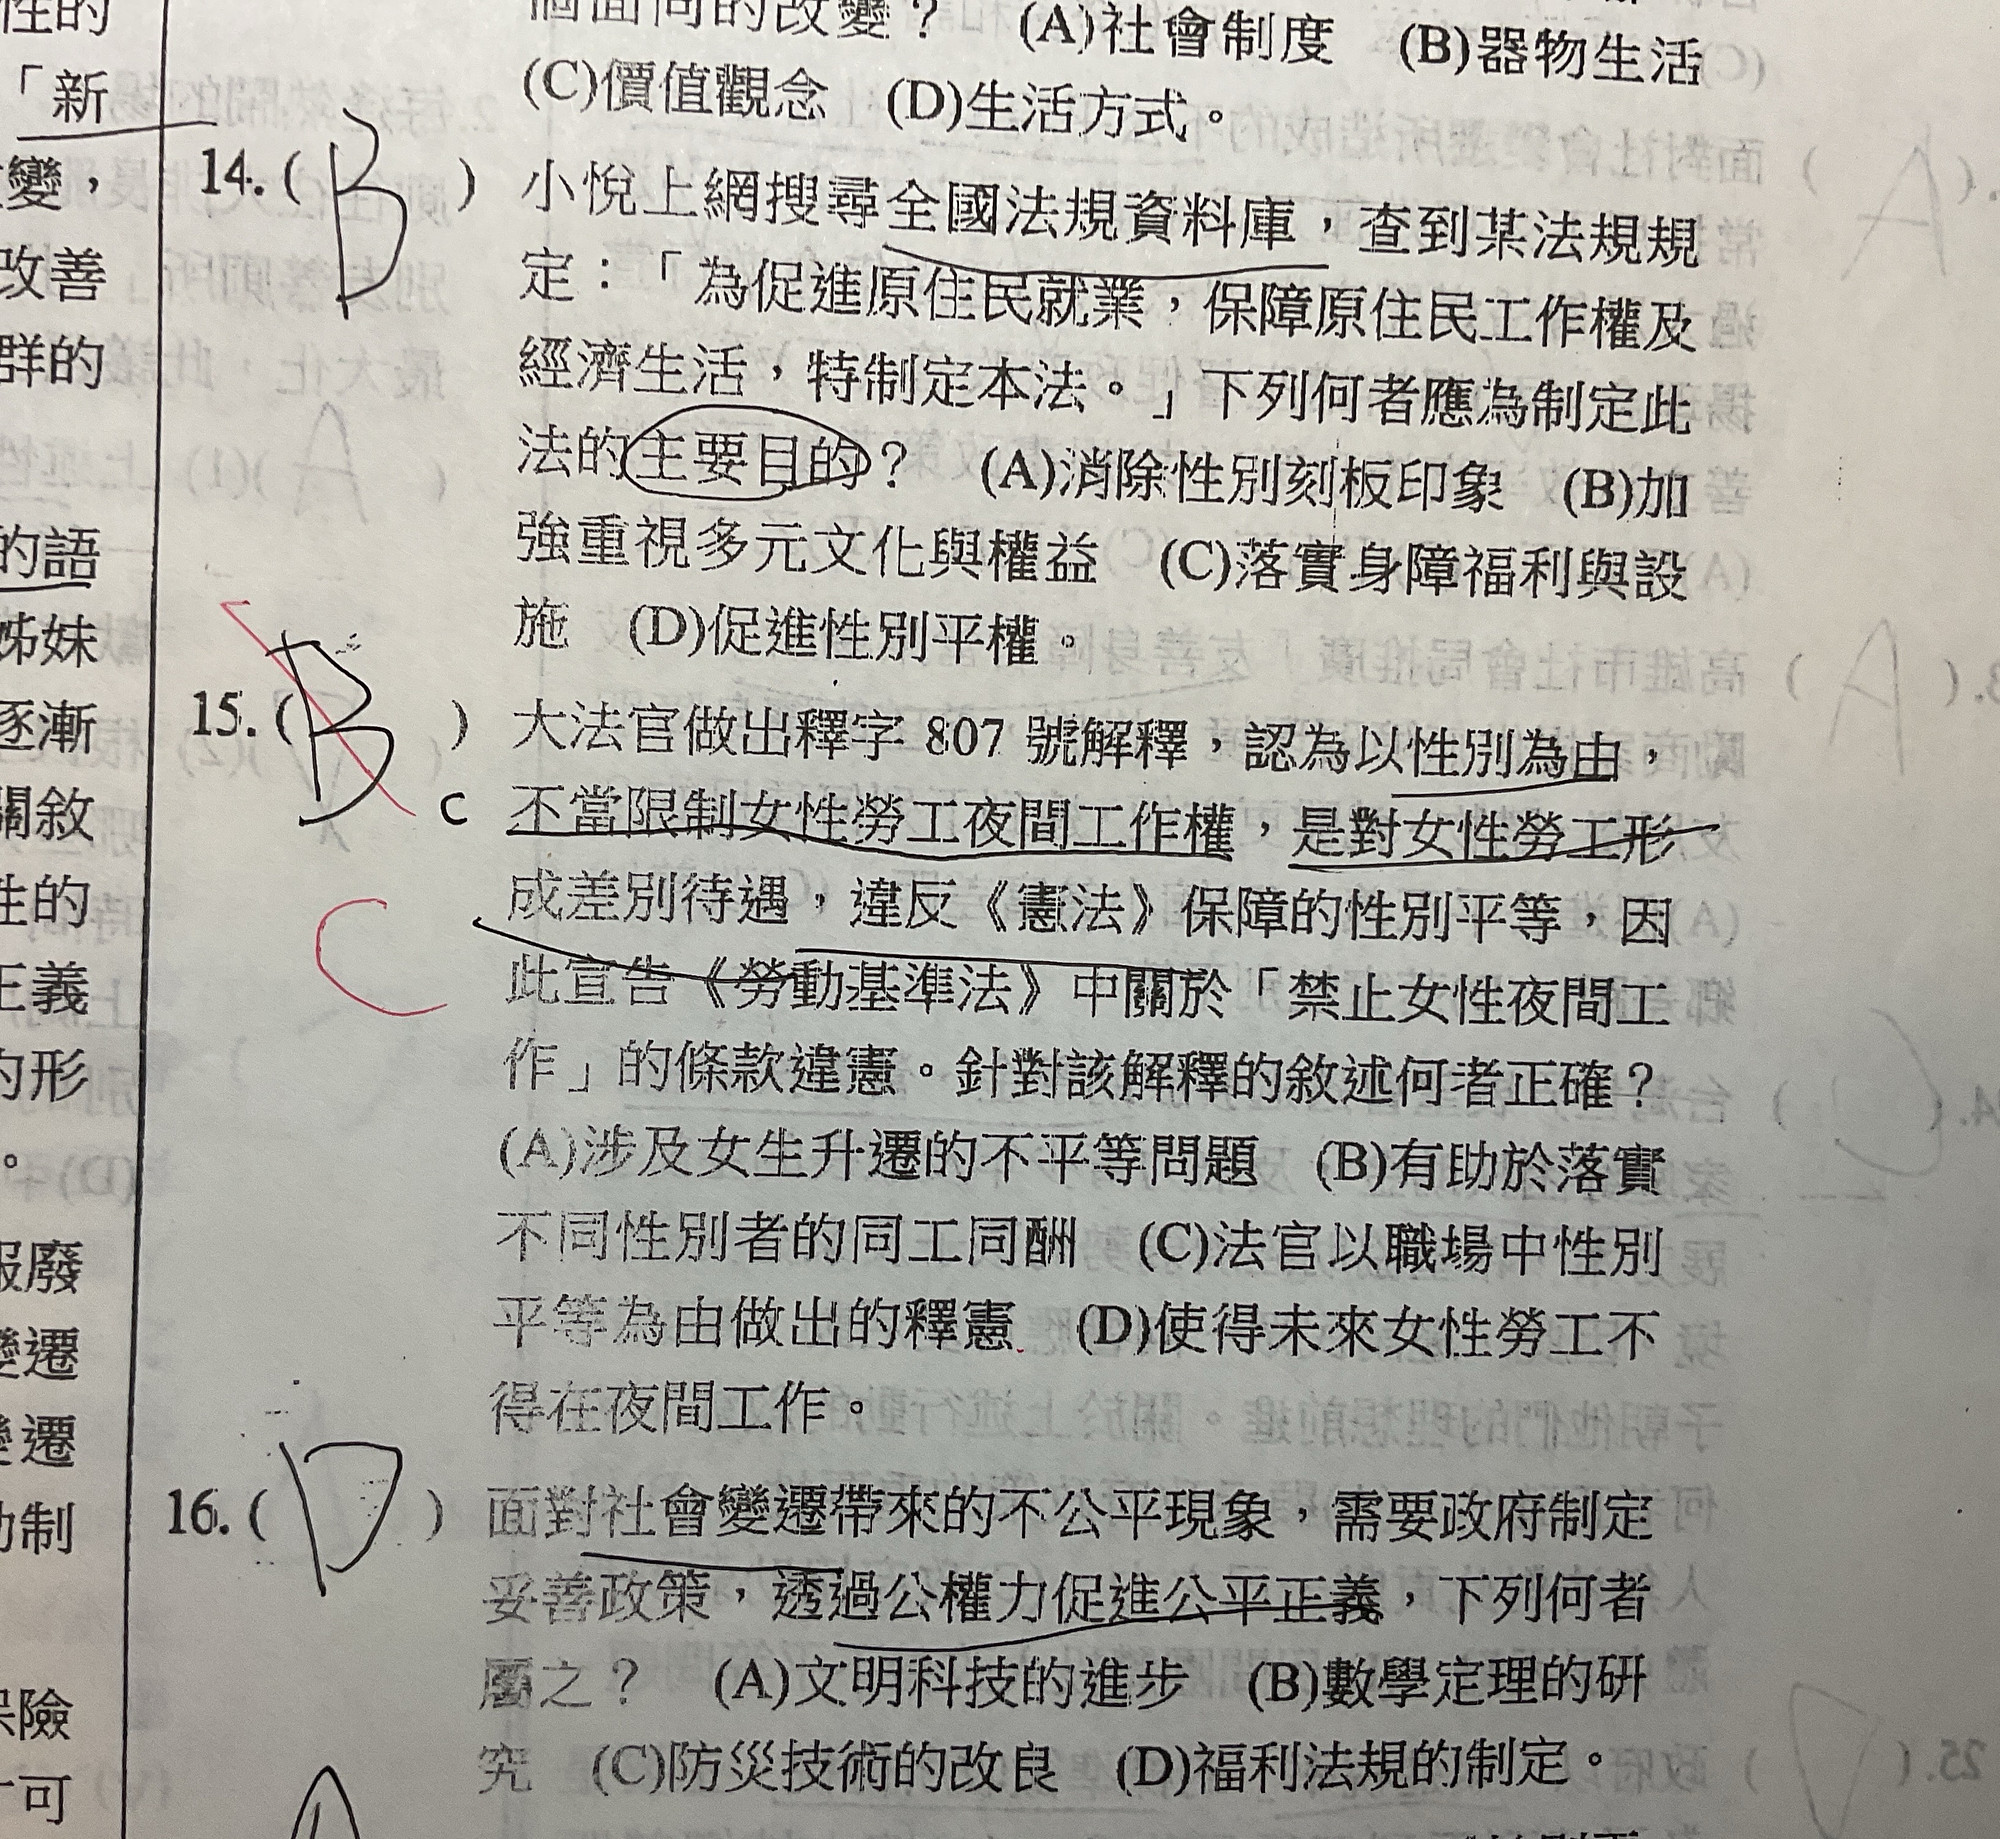 性的
「新
變，
改善
群的
的語
姊妹
逐漸
關敘
性的
正義
的形
。
報廢
變遷
變遷
制
保險
可
個面向的改變？ (A)社會制度 (B)器物生活
(C)價值觀念 (D)生活方式。
14.( B ) 小悅上網搜尋全國法規資料庫，查到某法規規
定：「為促進原住民就業，保障原住民工作權及
經濟生活，特制定本法。」下列何者應為制定此
法的主要目的？ (A)消除性別刻板印象 (B)加
強重視多元文化與權益 (C)落實身障福利與設
施 (D)促進性別平權。
15.( B ) 大法官做出釋字 807 號解釋，認為以性別為由，
C 不當限制女性勞工夜間工作權，是對女性勞工形
成差別待遇，違反《憲法》保障的性別平等，因
C
此宣告《勞動基準法》中關於「禁止女性夜間工
作」的條款違憲。針對該解釋的敘述何者正確？
(A)涉及女生升遷的不平等問題 (B)有助於落實
不同性別者的同工同酬 (C)法官以職場中性別
平等為由做出的釋憲 (D)使得未來女性勞工不
得在夜間工作。
16.( D ) 面對社會變遷帶來的不公平現象，需要政府制定
妥善政策，透過公權力促進公平正義，下列何者
屬之？ (A)文明科技的進步 (B)數學定理的研
究 (C)防災技術的改良 (D)福利法規的制定。